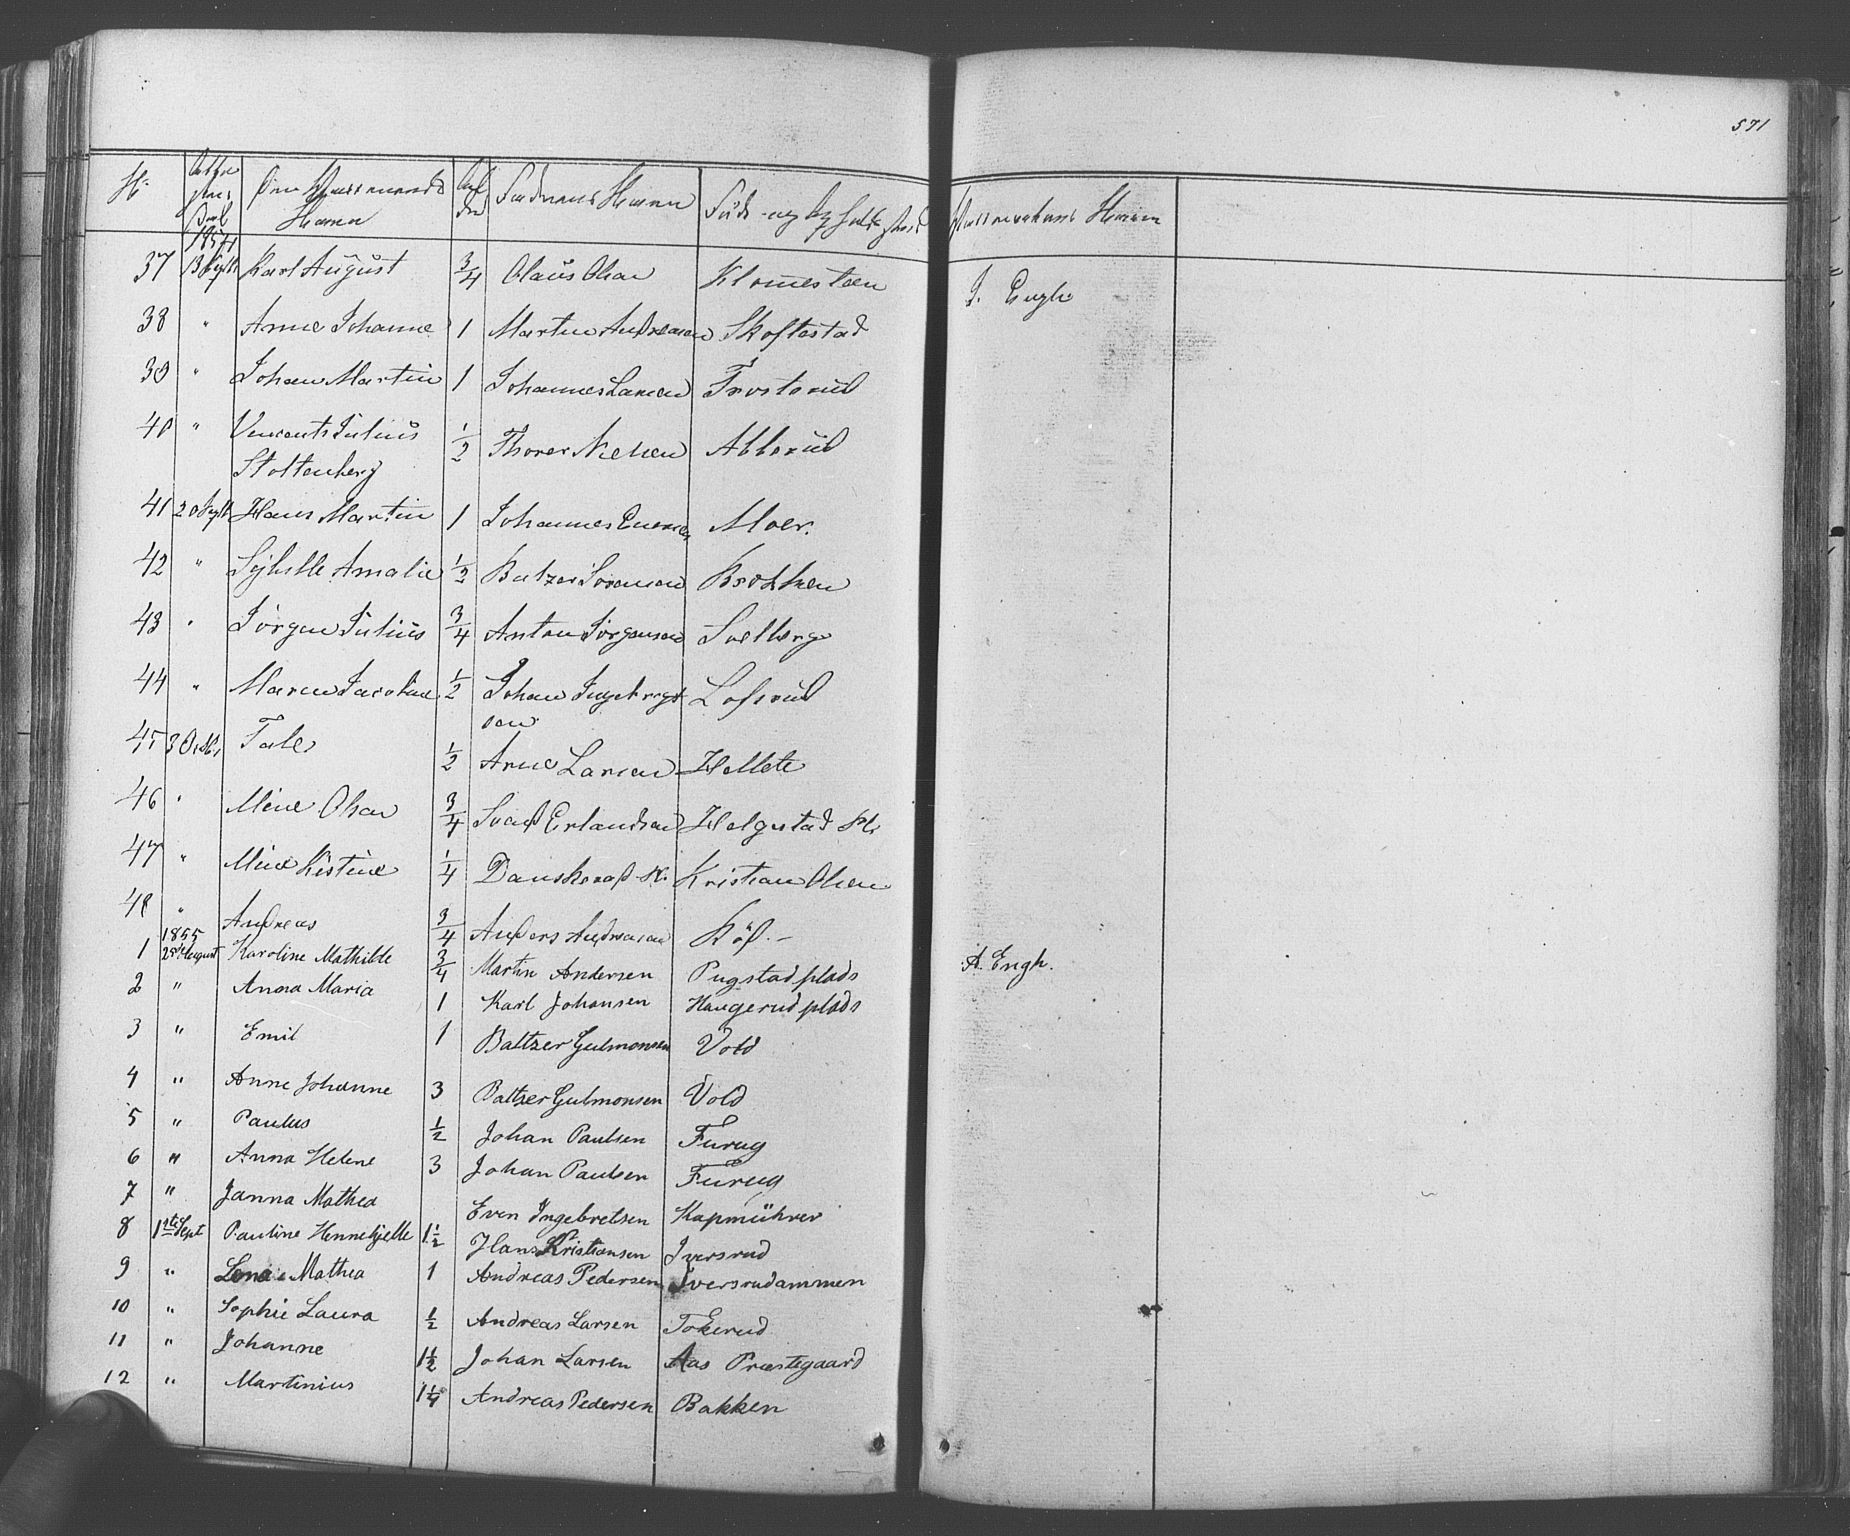 571
No
Vaccinations Navn
Faderens Navn
Føde- og Opholdssted
Vaccinateurs Navn
1854
37 13 Sept Karl August 3/4 Olaus Olsen Klomesteen J. Engh
38 " Anne Johanne 1 Martin Andreasen Skoftestad
39 " Johan Martin 1 Johannes Larsen Frosterud
40 " Vincents Julius 1/2 Thorer Nielsen Abborud
Stoltenberg
41 20 Sept Hans Martin 1 Johannes Evensen Moer.
42 " Amalie 1/2 Baltzer Sørensen Brekken
43 " Jørgen Julius 3/4 Anton Jørgensen Solberg
44 " Maren Jacobine 1/2 Johan Ingebrigt Lofsrud
sen
45 3 Octbr Tale 1/2 Arne Larsen Hellete
46 " Mine Olsen 3/4 Svend Erlandsen Helgestad
47 " Mine Kistine 1/4 Danskerud Kristian Olsen
48 " Andreas 3/4 Anders Andreasen
1855
1 25de August Karoline Mathilde 3/4 Martin Andersen Pugstad plads A. Engh.
2 " Anna Maria 1 Karl Johansen Haugerud plads
3 " Emil 1 Baltzer Gulmonsen Vold
4 " Anne Johanne 3 Baltzer Gulmonsen Vold
5 " Paulus 1/2 Johan Paulsen Furug
6 " Anna Helene 3 Johan Paulsen Furug
7 " Janna Mathea Even Ingebretsen Kapmührer
8 1ste Sept Pauline Hennekjelle 1 1/2 Hans Kristiansen Iversrud
9 " Lena Mathea 1 Andreas Pedersen Iversrudammen
10 " Sophie Laura 1/2 Andreas Larsen Tokerud
11 " Johanne 1 1/2 Johan Larsen Aas Præstegaard
12 " Martinius 1 1/4 Andreas Pedersen Bakken